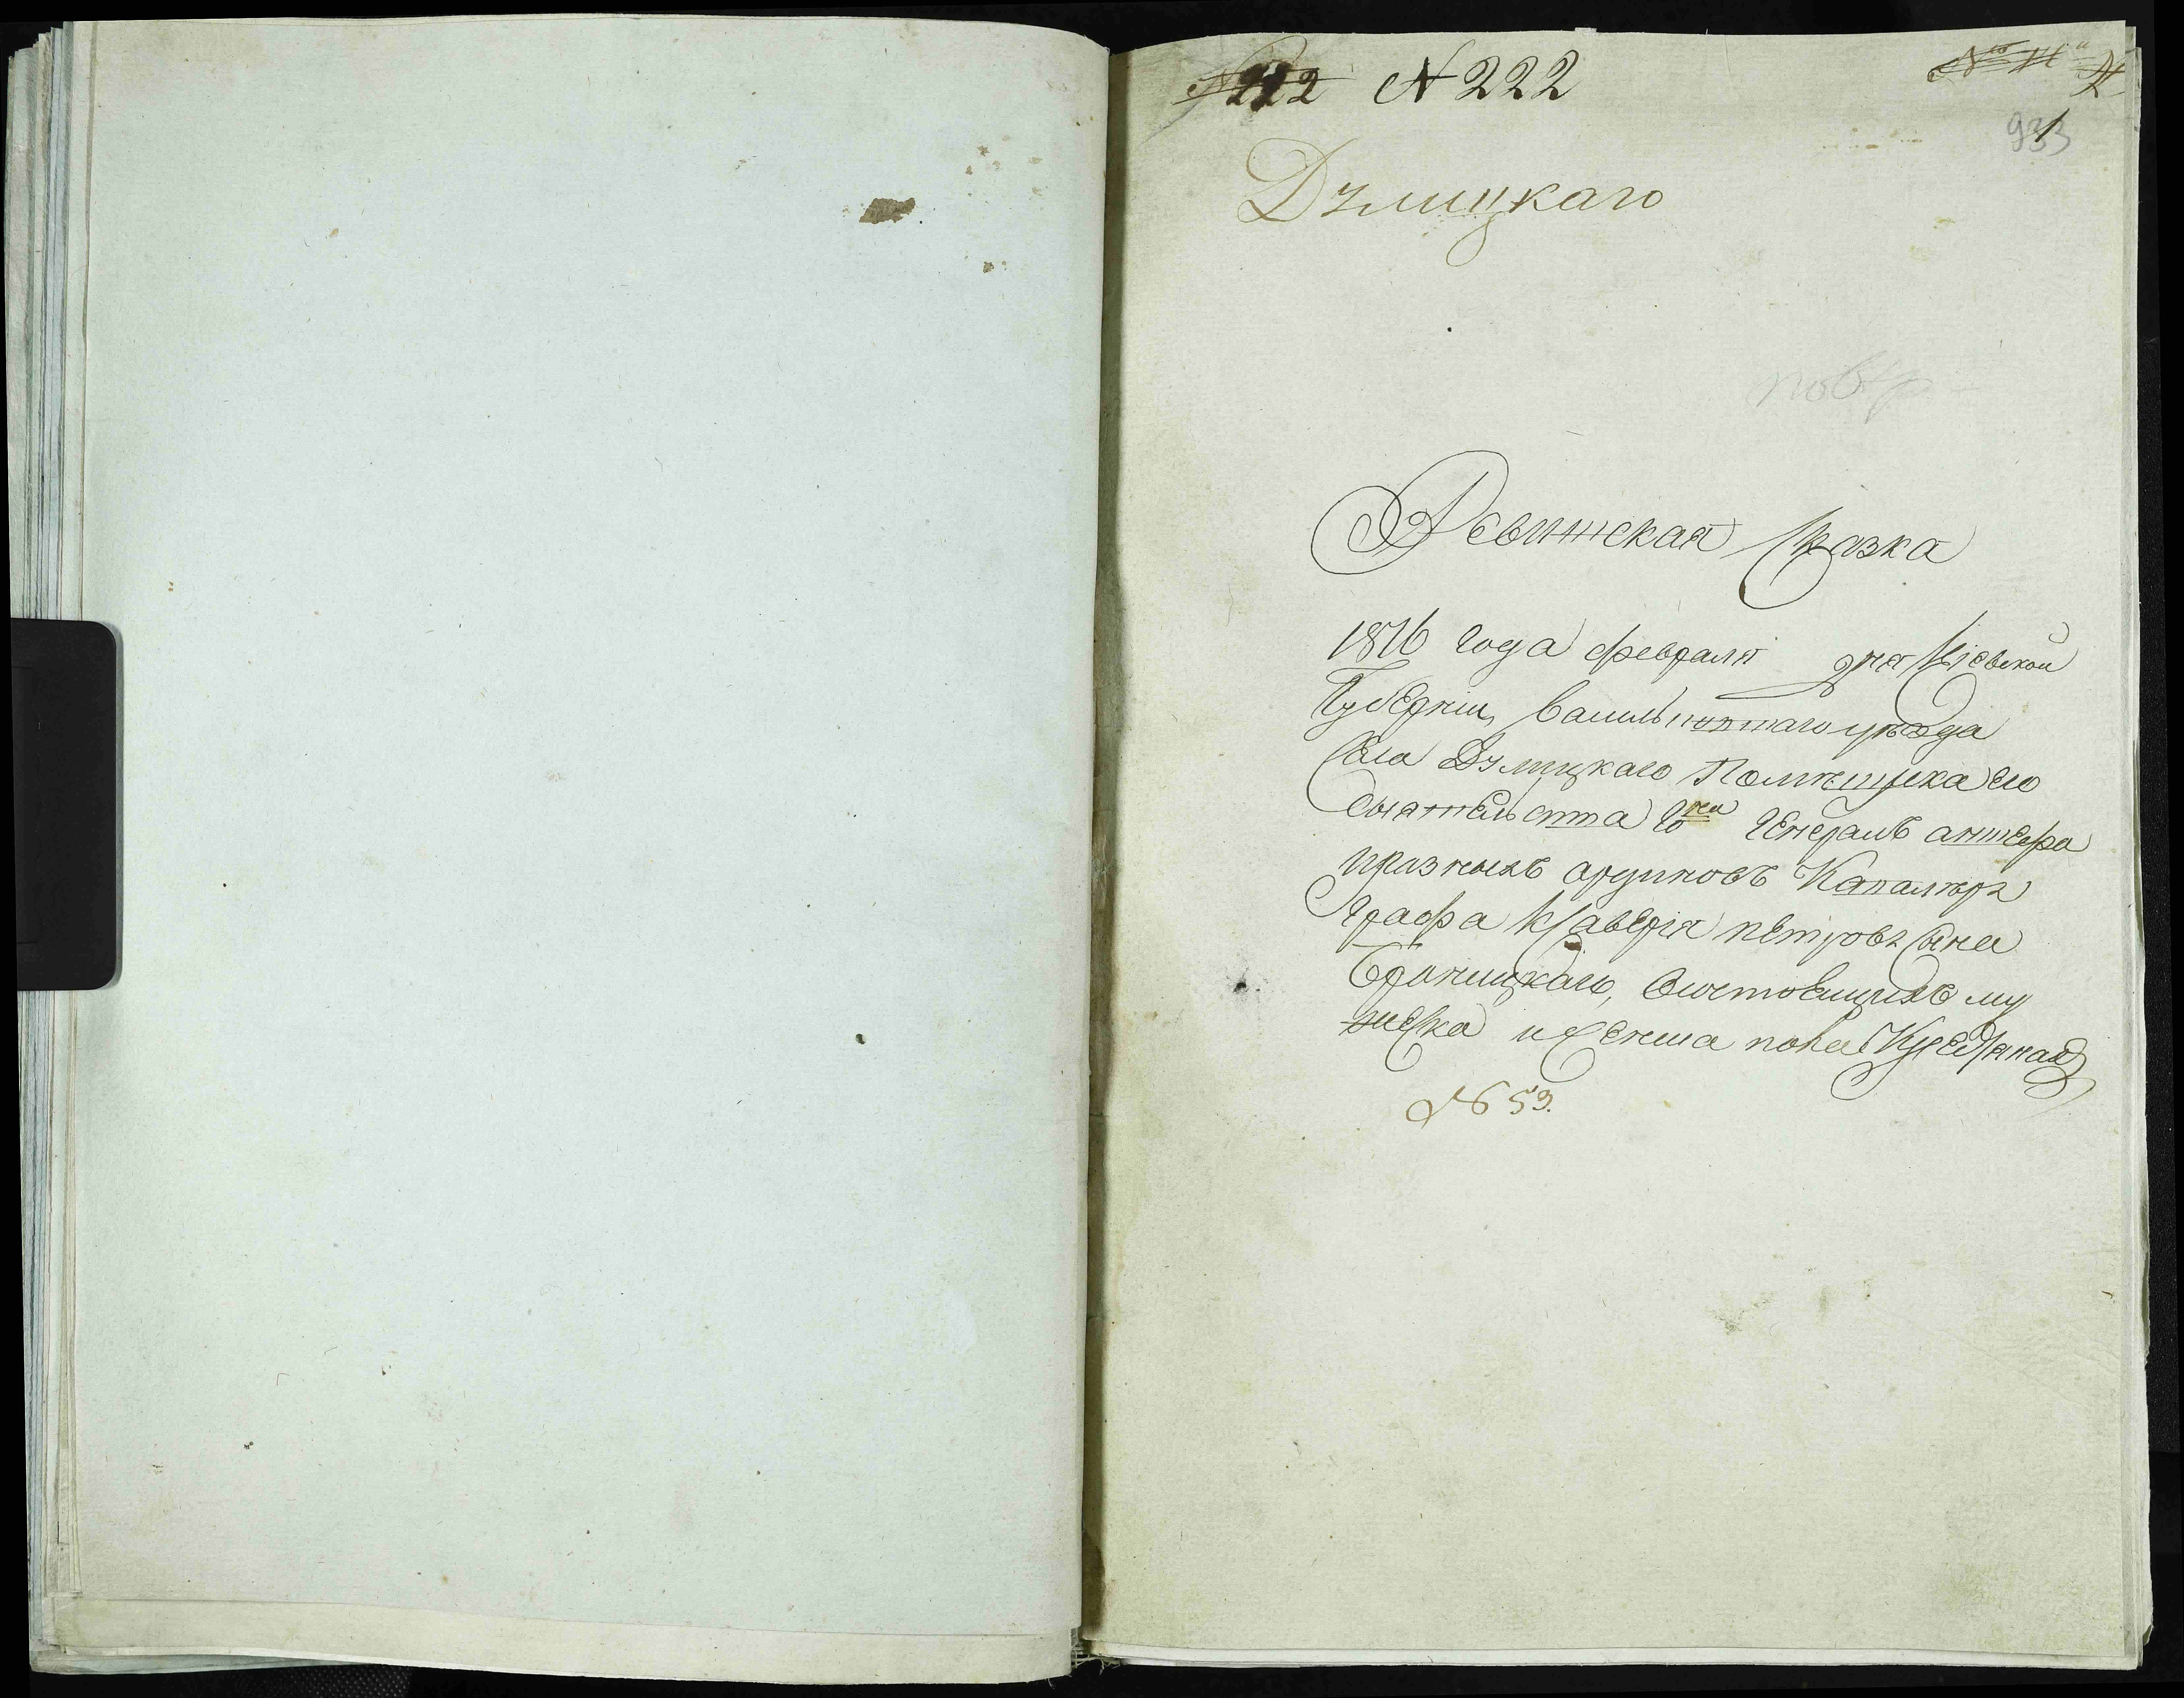 222 N 222
933
1
Дзмицкаго
повтр
Ревижская Сказка
1816 года февраля дня Кіевской
Губерніи, Васильковскаго уезда
Села Дзмицкаго Помещика его
Сыятельства Гна Генералъ аншефа
иразныхъ ординовъ Кавалера
Графа Ксаверія петровъ Сына
Браницкаго, Состоящихъ му
жеска и женска пола Крестьянах
N 53.